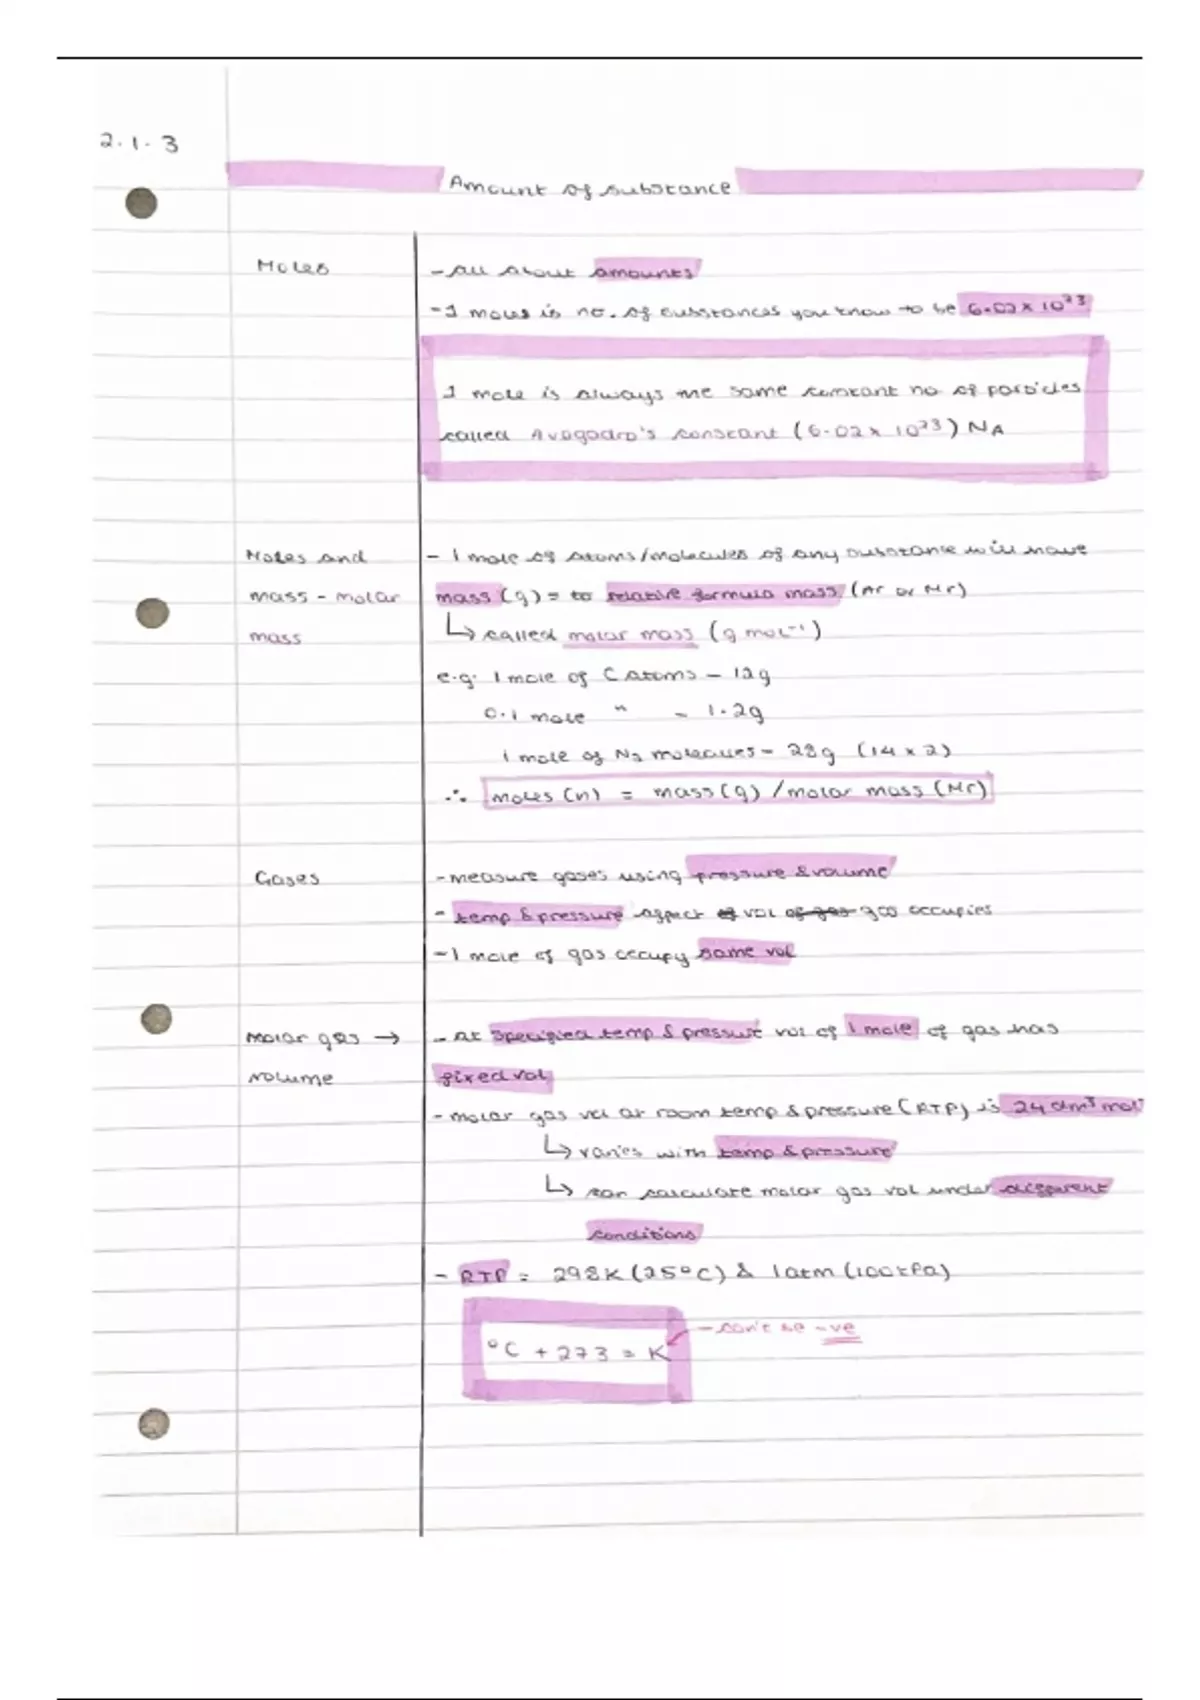 2.1.3
Amount of substance
Moles
- All about amounts
- 1 moles is no. of substances you know to be 6.02 x 10²³
1 mole is always the same constant no of particles
called Avogadro's constant (6.02 x 10²³) NA
Moles and
mass - molar
mass
- 1 mole of atoms/molecules of any substance will have
mass (g) = to relative formula mass (Ar or Mr)
↳ called molar mass (g mol⁻¹)
e.g. 1 mole of C atoms - 12g
0.1 mole " - 1.2g
1 mole of N₂ molecules - 28g (14 x 2)
∴ moles (n) = mass (g) / molar mass (Mr)
Gases
- measure gases using pressure & volume
- temp & pressure affect of vol of gas gas occupies
- 1 mole of gas occupy same vol
Molar gas →
volume
- At specified temp & pressure vol of 1 mole of gas has
fixed vol
- molar gas vol at room temp & pressure (RTP) is 24 dm³ mol⁻
↳ varies with temp & pressure
↳ can calculate molar gas vol under different
conditions
- RTP = 298K (25°C) & 1atm (100kPa)
°C + 273 = K
- can't be -ve